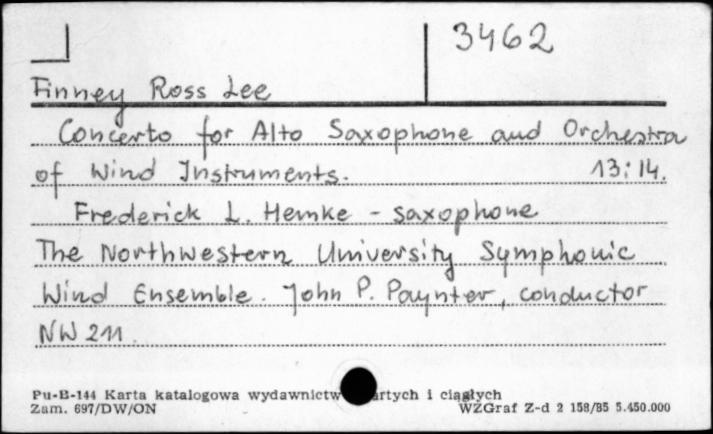 3462
Finney Ross Lee
Concerto for Alto Saxophone and Orchestra
of Wind Instruments. 13:14.
Frederick L. Hemke - saxophone
The Northwestern University Symphonic
Wind Ensemble. John P. Paynter, conductor
NW 211.
Pu-B-144 Karta katalogowa wydawnictw i ciągłych
Zam. 697/DW/ON WZGraf Z-d 2 158/85 5.450.000